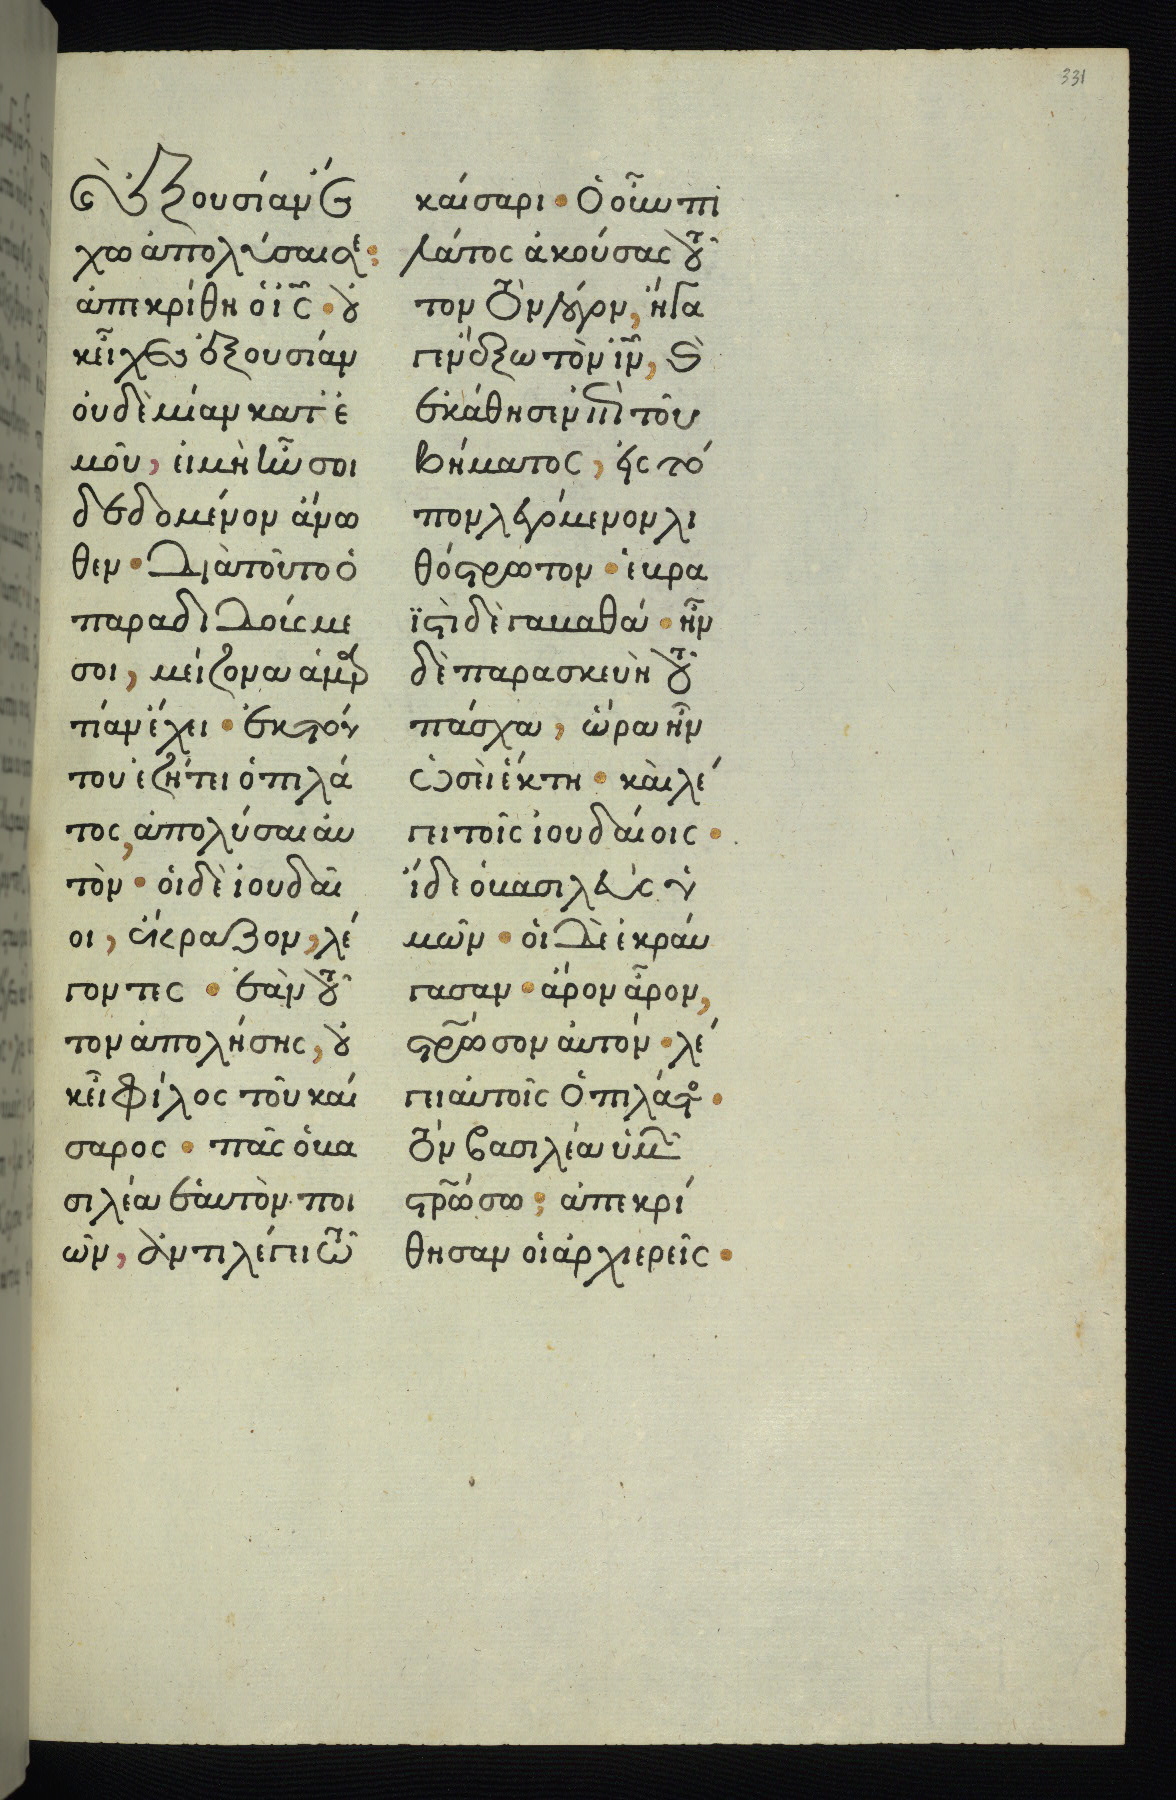 331
ἐξουσίαν ἔ
χω ἀπολύσαί σε;
ἀπεκρίθη ὁ ις· οὐ
κ εἶχες ἐξουσίαν
οὐδεμίαν κατ' ἐ
μοῦ, εἰ μὴ ἦν σοι
δεδομένον ἄνω
θεν· διὰ τοῦτο ὁ
παραδιδούς με
σοι, μείζονα ἁμαρ
τίαν ἔχει· ἐκ τού
του ἐζήτει ὁ πιλά
τος, ἀπολύσαι αὐ
τὸν· οἱ δὲ ἰουδαῖ
οι, ἔκραζον, λέ
γοντες· ἐὰν τοῦ
τον ἀπολήσης, οὐ
κ εἶ φίλος τοῦ καί
σαρος· πᾶς ὁ βα
σιλέα ἑαυτὸν ποι
ῶν, ἀντιλέγει τῶ
καίσαρι· Ὁ οὖν πι
λάτος ἀκούσας τοῦ
τον τὸν λόγον, ἤγα
γεν ἔξω τὸν ιν, καὶ
ἐκάθησεν ἐπὶ τοῦ
βήματος, εἰς τό
πον λεγόμενον λι
θόστρωτον· ἑβρα
ϊστὶ δὲ γαββαθά· ἦν
δὲ παρασκευὴ τοῦ
πάσχα, ὥρα ἦν
ὡσεὶ ἕκτη· καὶ λέ
γει τοῖς ἰουδαίοις·
ἴδε ὁ βασιλεὺς ὑ
μῶν· οἱ δὲ ἐκραύ
γασαν· ἄρον ἆρον,
σταύρωσον αὐτόν· λέ
γει αὐτοῖς ὁ πιλάτος·
τὸν βασιλέα ὑμῶν
σταυρώσω; ἀπεκρί
θησαν οἱ ἀρχιερεῖς·